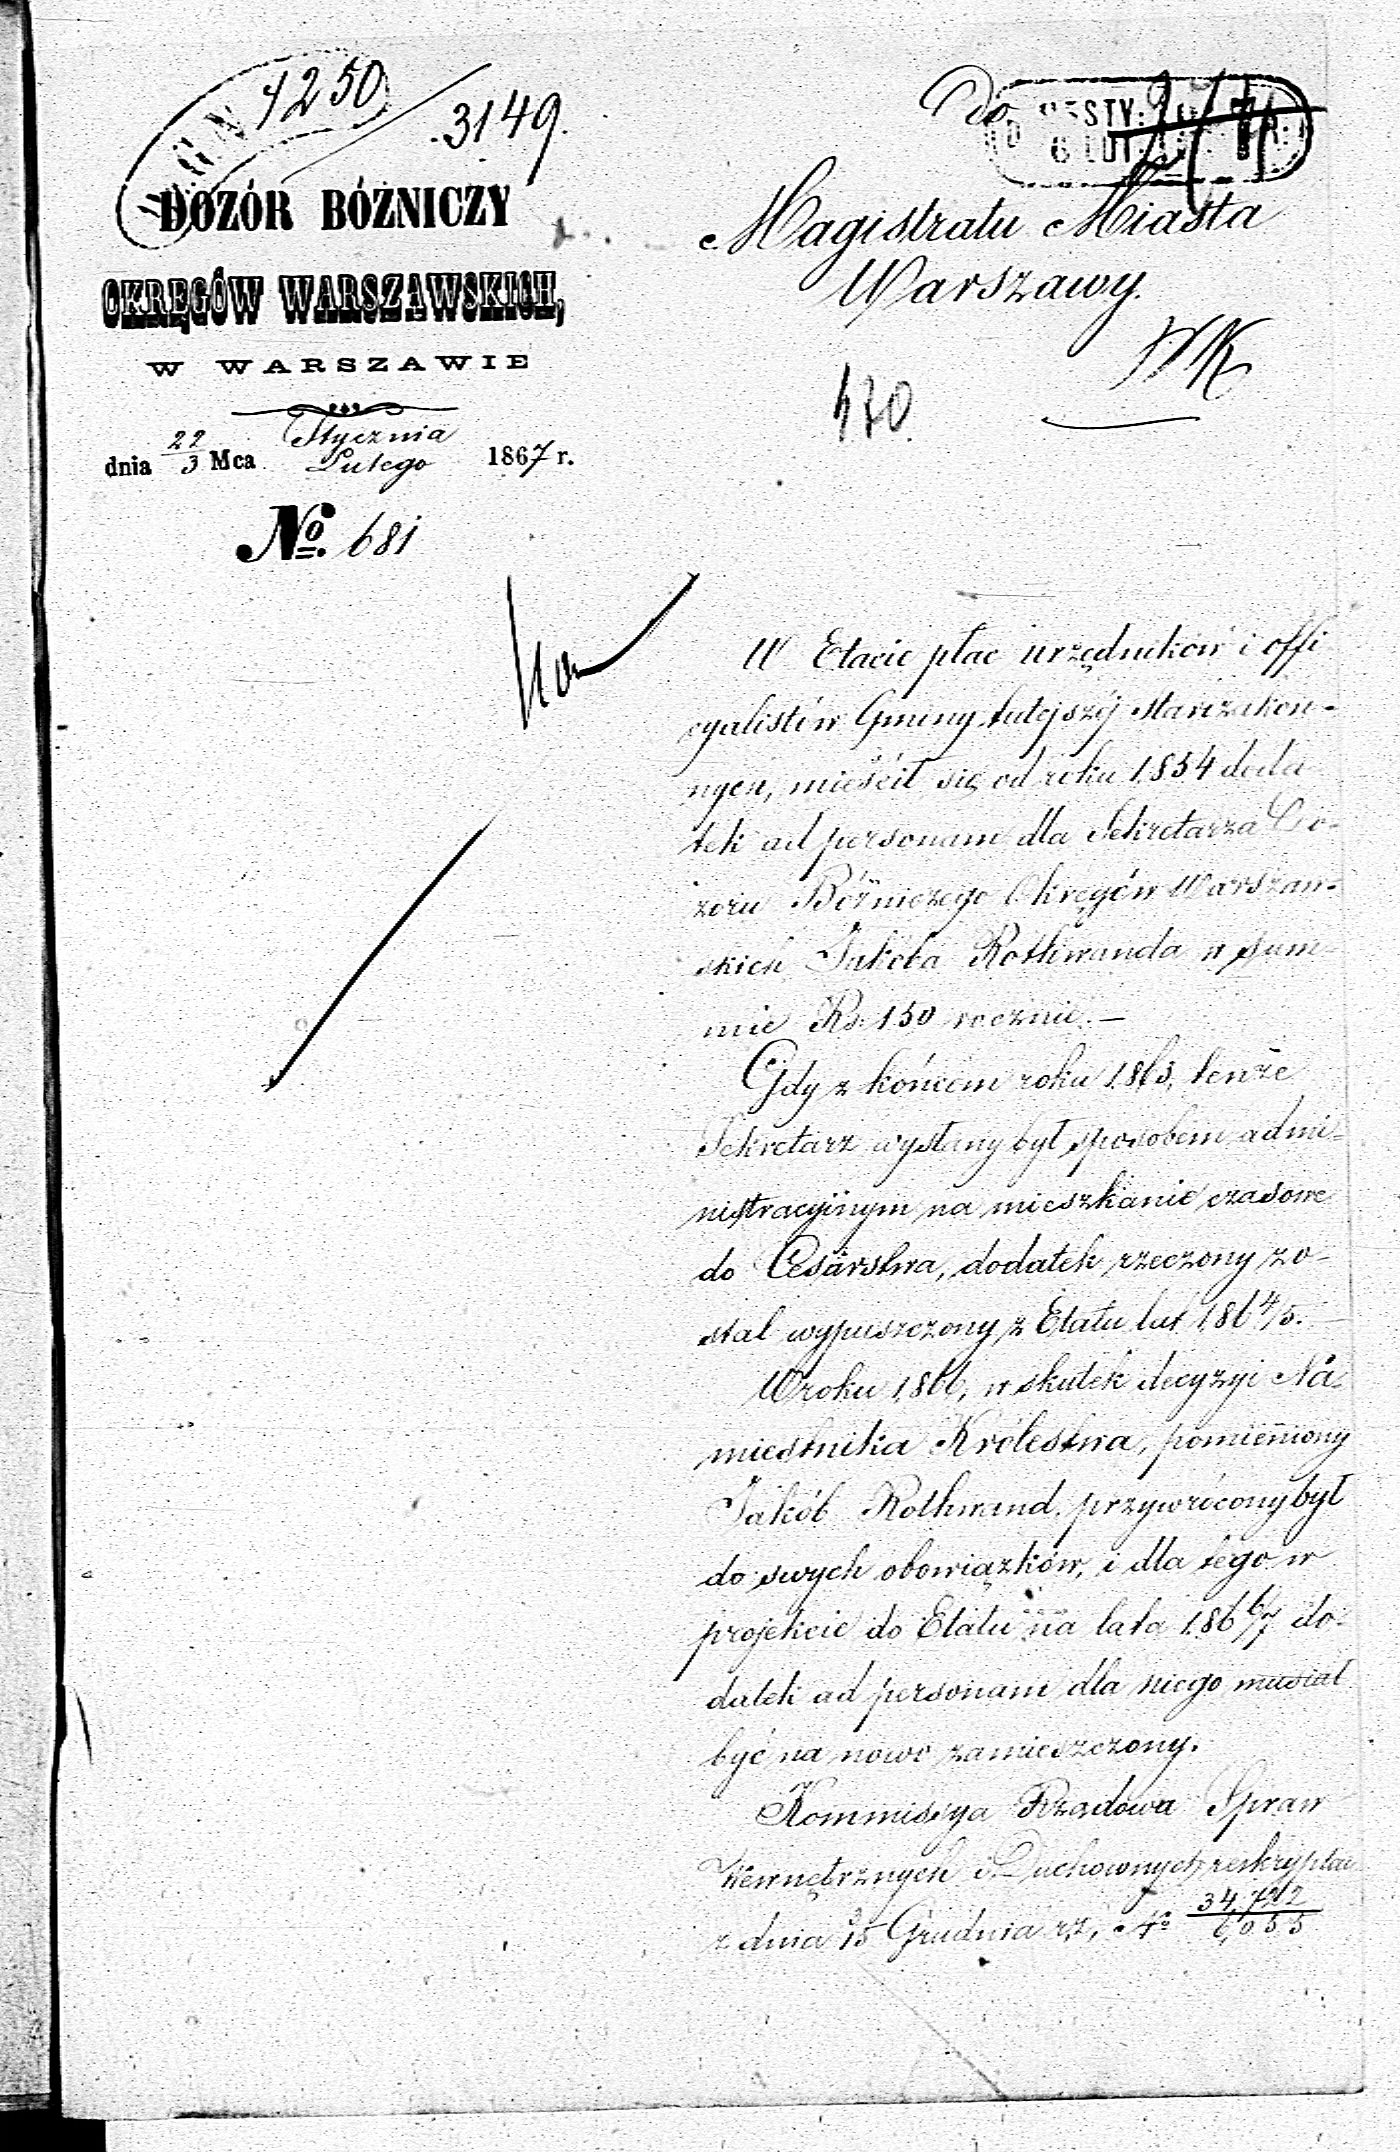 1250
3149.
DOZÓR BÓŻNICZY
OKRĘGÓW WARSZAWSKICH,
W WARSZAWIE
dnia 22/3 Mca Stycznia/Lutego 1867 r.
No. 681
Do
Magistratu Miasta
Warszawy.
W Etacie płac urzędników i offi
cyalistów Gminy tutejszéj Starozakon-
nych, mieścił się od roku 1854 doda
tek ad personam dla Sekretarza Do-
zoru Bóżniczego Okręgów Warszaw-
skich Jakóba Rothwanda w sum-
mie Rs. 150 rocznie. —
Gdy z końcem roku 1863, tenże
Sekretarz wysłany był sposobem admi-
nistracyjnym na mieszkanie czasowe
do Cesarstwa, dodatek rzeczony zo-
stał wypuszczony z Etatu lat 1864/5.
W roku 1866, w skutek decyzyi Na-
miestnika Królestwa, pomieniony
Jakób Rothwand, przywrócony był
do swych obowiązków, i dla tego w
projekcie do Etatu na lata 1866/7 do-
datek ad personam dla niego musiał
być na nowo zamieszczony.
Kommissya Rządowa Spraw
Wewnętrznych i Duchownych, reskryptem
z dnia 3/15 Grudnia r.z., No 34,722/6,055